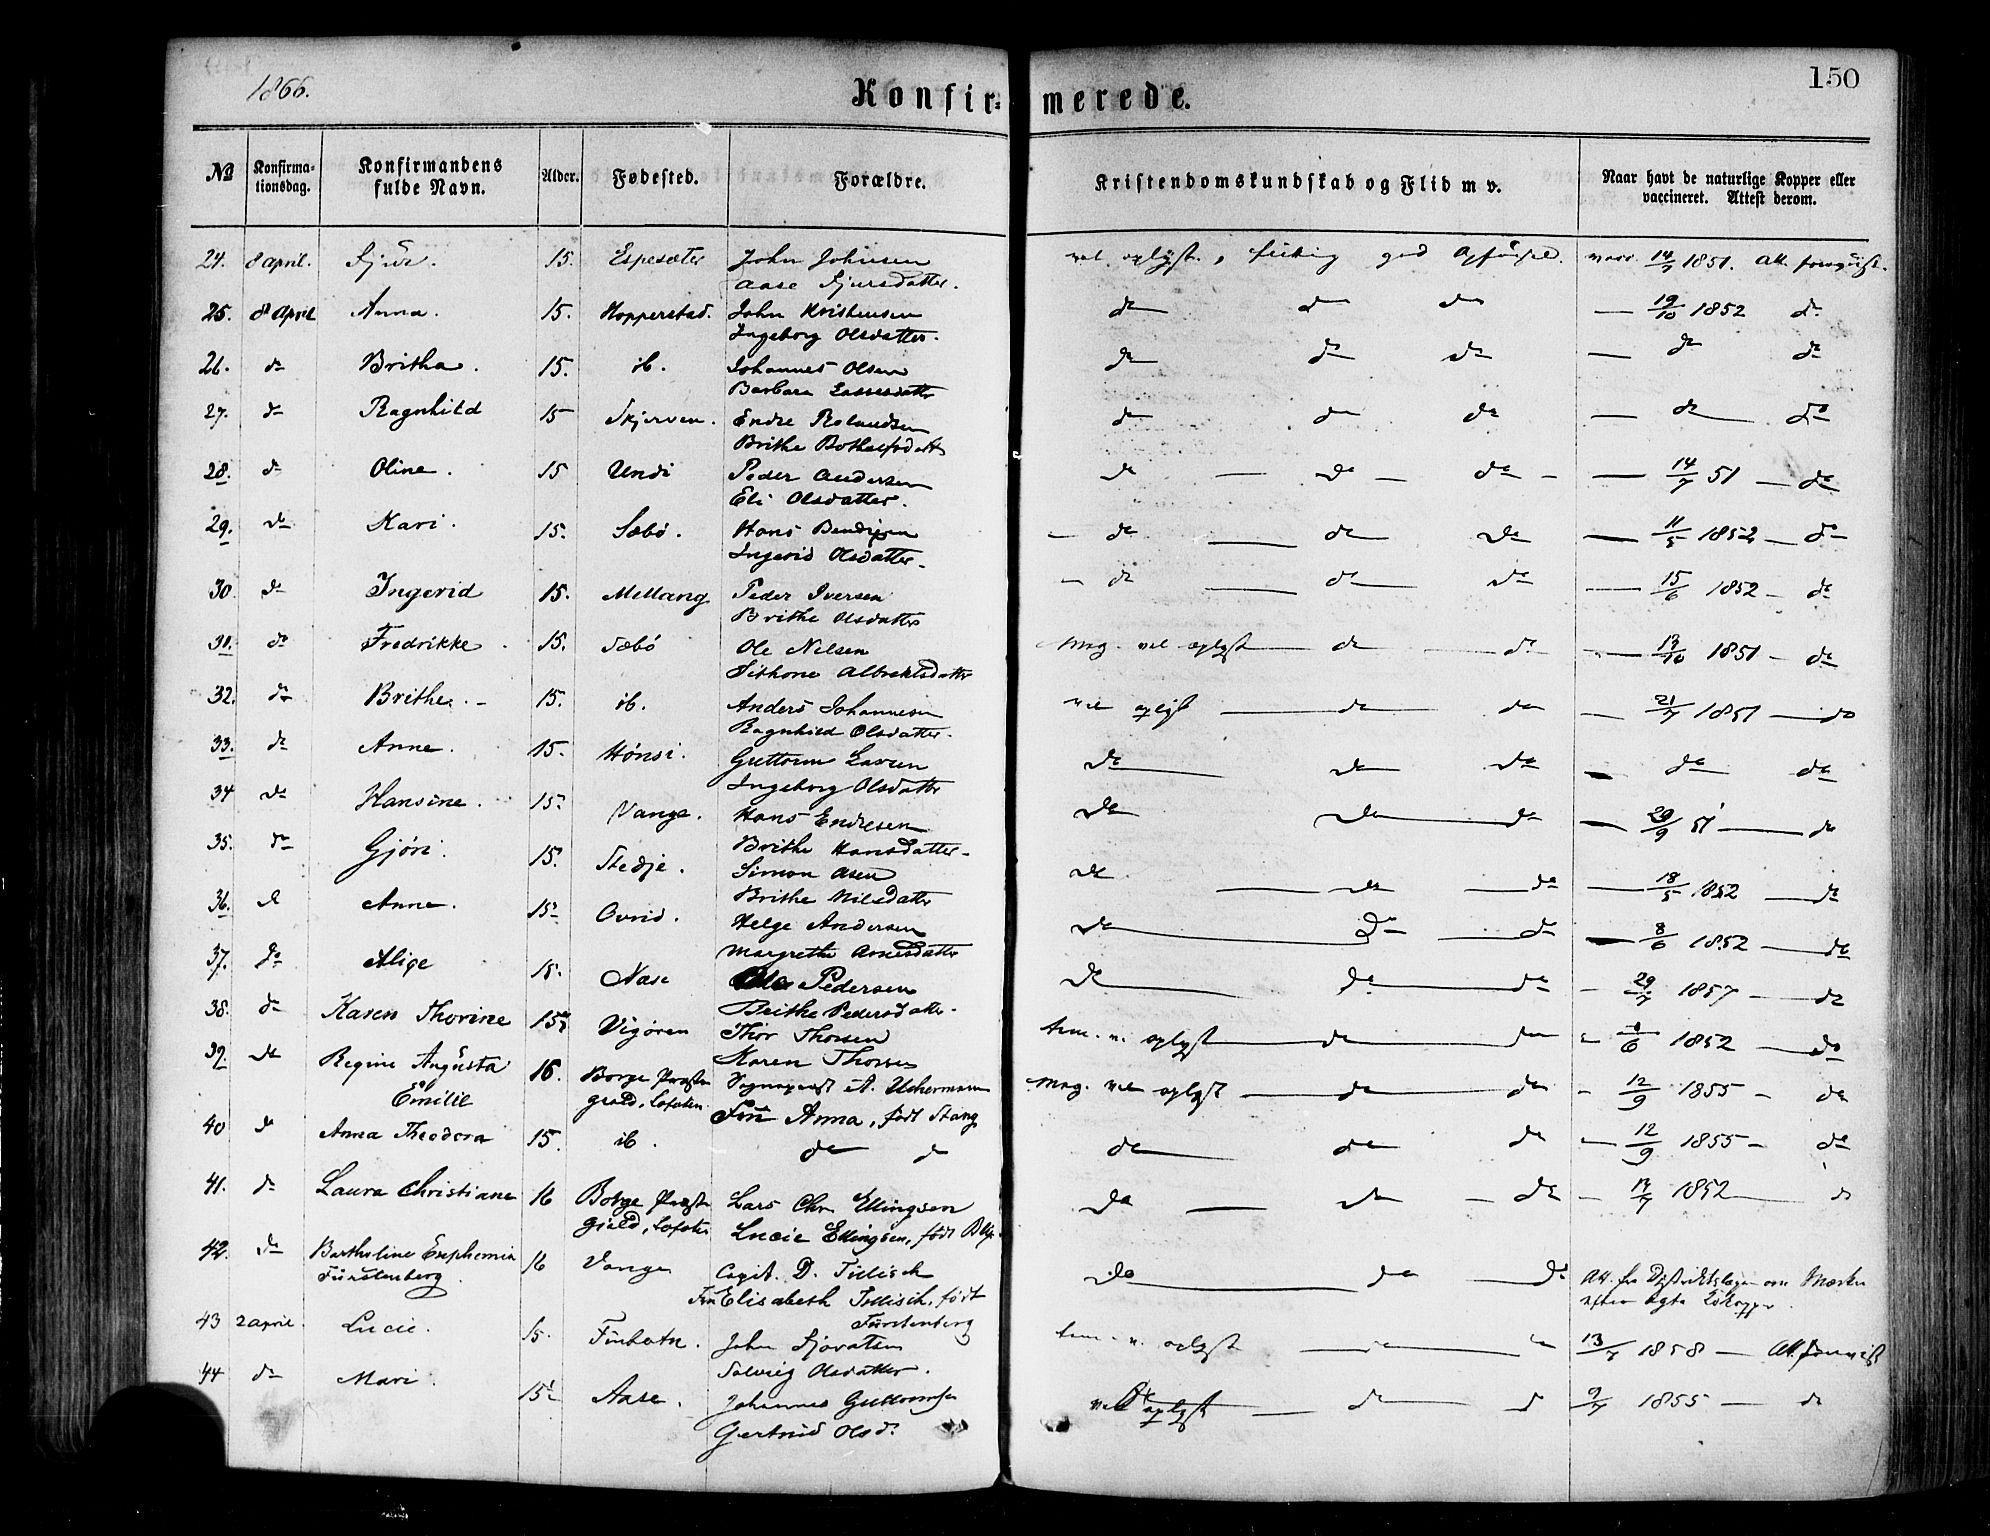 1866.
Konfirmerede.
150
№ Konfirmationsdag. Konfirmandens fulde Navn. Alder. Fødested. Forældre. Kristendomskundskab og Flid m v. Naar havt de naturlige Kopper eller vaccineret. Attest derom.
24. 8 april. Sjur. 15. Espesæter John Johnsen vel oplyst, flittig god Opførsel. vacc. 14/7 1851. Att. forevist.
Aase Sjursdatter.
25. 8 April Anna. 15. Hopperstad. John Kristensen do do do — 19/10 1852 do
Ingeborg Olsdatter.
26. do Britha. 15. ib. Johannes Olsen do do do — do do
Barbara Lassesdatter
27. do Ragnhild 15 Skjerven. Endre Rolandsen do do do — do do
Brithe Botholfsdatt
28. do Oline. 15 Undi Peder Andersen do — do — do — — 14/7 51 — do
Eli Olsdatter.
29. do Kari. 15. Sæbø. Hans Bendixen — do — do do — 11/5 1852 — do
Ingerid Olsdatter.
30. do Ingerid 15. Mellang Peder Iversen — do — do do — 15/6 1852 — do
Brithe Olsdatter
31. do Fredrikke. 15. Sæbö Ole Nilsen Meg. vel oplyst — do — do — 13/10 1851 — do
Albrektsdatter
32. do Brithe. 15. ib. Anders Johannesen vel oplyst — do do — 21/7 1851 — do
Ragnhild Olsdatter.
33. do Anne. 15. Hønsi. Guttorm Larsen do — do do — do do
Ingeborg Olsdatter
34 do Hansine. 15. Vange. Hans Endresen do do — do — 29/9 51 — do
Brithe Hansdatter
35. do Gjøri. 15. Stedje. Simon Asen do — do — do — 18/5 1852 — do
Brithe Nilsdatter
36. do Anne. 15 Ovrid. Helge Andersen do — do — do — 8/6 1852 — do
Margrethe Arnesdatter
37. do Alige 15. Nase Ole Pedersen do — do — do — 29/7 1857 — do
Brithe Pedersdatter.
38. do Karen Thorine 15 Vigøren Thor Thorsen tem. v. oplyst — do — do — /6 1852 — do
Karen Thorsen
39. do Regine Augusta 16. Borge Præste Sognepræst A. Uchermann Meg. vel oplyst — do — do — 12/9 1855 — do
Emilie gjæld, Lofoten Fru Anna, født Stang
40 do Anna Theodora 15. ib. do do do — do do — 12/9 1855 — do
41. do Laura Christiane 16 Borge Præste Lars Chr. Ellingsen do — do — do — 13/7 1852 — do
gjæld, Lofoten Lucie Ellingsen, født
42. do Bartholine Euphemia 16 Vange Capit. D. Tillisch do — do — do Att. fra Distriktslægen om Mærker
Fürstenberg. Fru Elisabeth Tillisch, født efter ægte
Fürstenberg
43 2 april. Lucie. 15. Finbotn. John Sjovatsen tem. v. oplyst — do — do 13/7 1858 — Att. forevist
Solvieg Olsdatter.
44 do Mari. 15 Aase. Johannes Guttormsen vel oplyst — do — d 9/7 1855 — do
Gertrud Olsd.